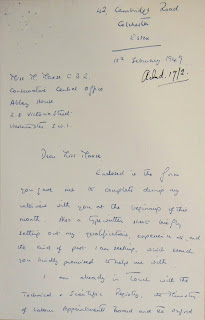 42 Cambridge Road
Colchester
Essex
11th February 1949
Ackd. 17/2.
Miss H. Maxse C.B.E.
Conservative Central Office
Abbey House
2-8 Victoria Street
Westminster S.W.1.
Dear Miss Maxse
Enclosed is the form
you gave me to complete during my
interview with you at the beginning of this
month. Also a typewritten sheet briefly
setting out my qualifications, experience etc, and
the kind of post I am seeking, with which
you kindly promised to help me with.
I am already in touch with the
Technical & Scientific Register, the Ministry
of Labour Appointments Board and the Oxford